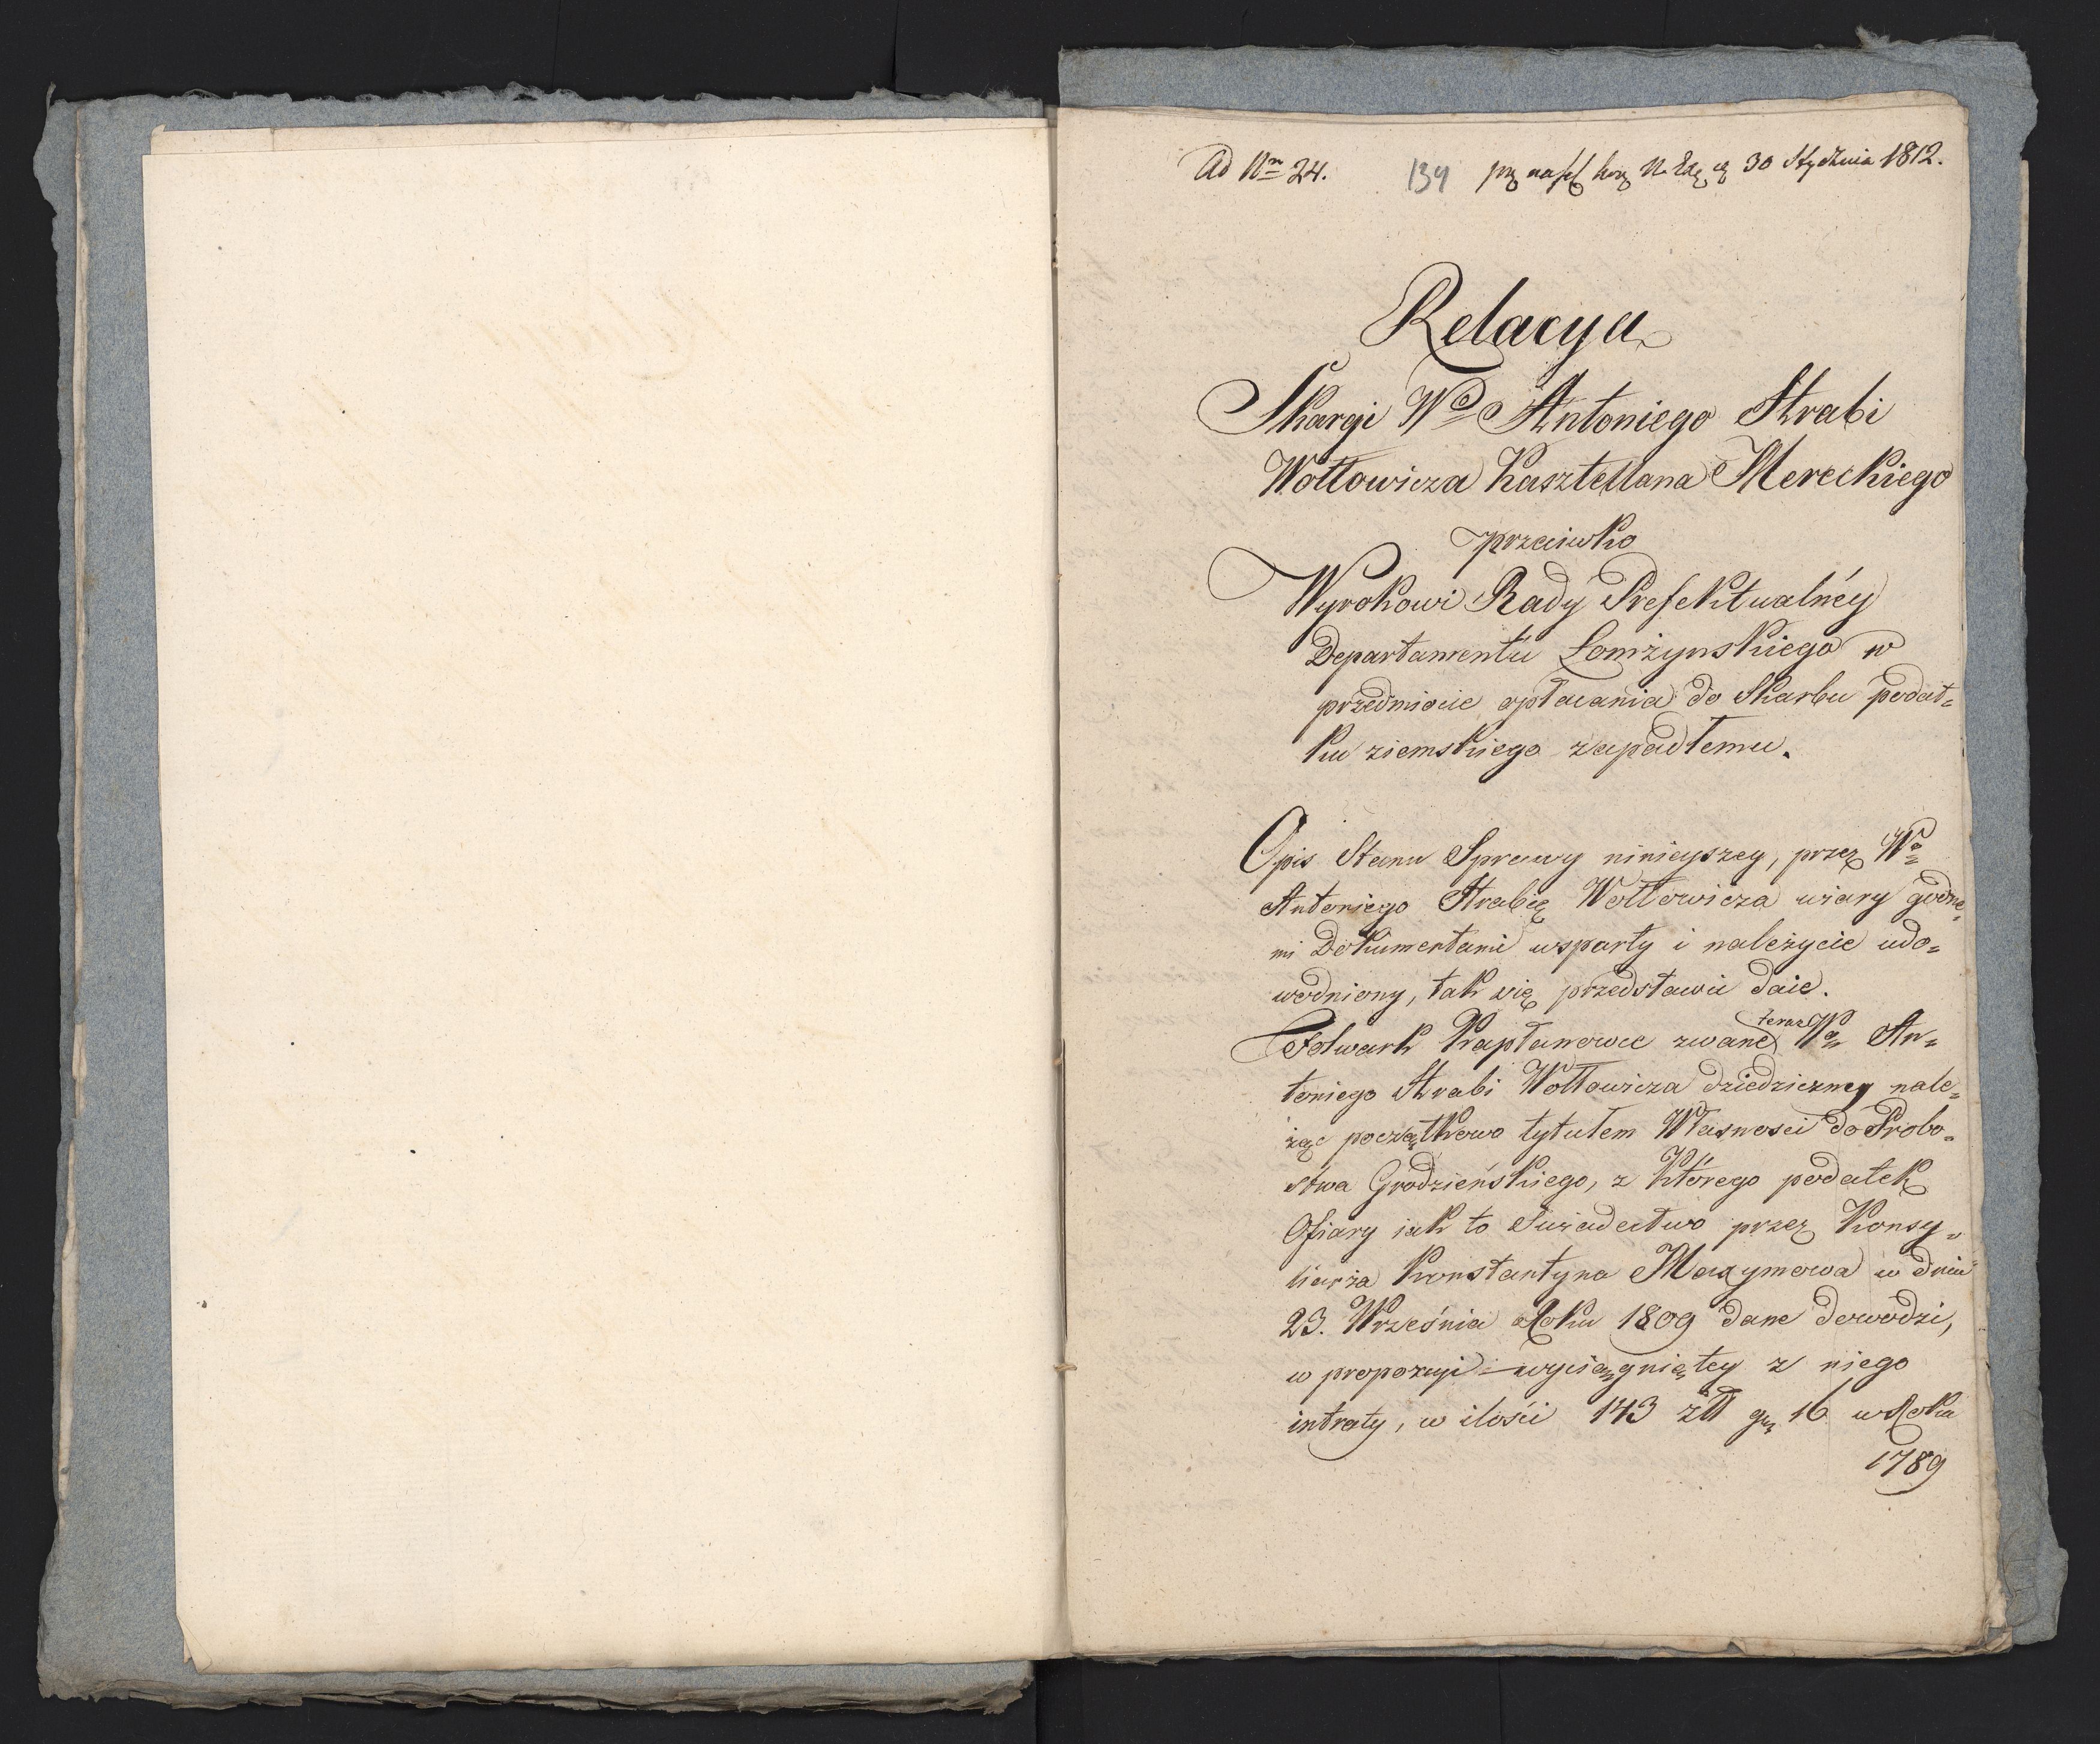 Ad Nr 24. 134 30 Stycznia 1812.
Relacya
Skargi Wo Antoniego Hrabi
Wołłowicza Kasztellana Mereckiego
przeciwko
Wyrokowi Rady Prefektualnéy
Departamentu Łomżynskiego w
przedmiocie opłacania do Skarbu podat=
ku ziemskiego zapadłemu.
Opis Stanu Sprawy ninieyszey, przez Wo
Antoniego Hrabię Wołłowicza wiary godne
mi Dokumentami wsparty i należycie udo=
wodniony, tak się przedstawić daie.
Folwark Kapłanowce zwane teraz Wo An=
toniego Hrabi Wołłowicza dziedziczney nale=
żąc początkowo tytułem Własnosci do Probo=
stwa Grodzieńskiego, z którego podatek
Ofiary iak to Swiadectwo przez Konsy=
liarza Konstantyna Maxymowa w dniu
23. Września Roku 1809 dane dowodzi,
w proporcyi wyciągniętey z niego
intraty, w ilości 143 złł gr 16 w Roku
1789